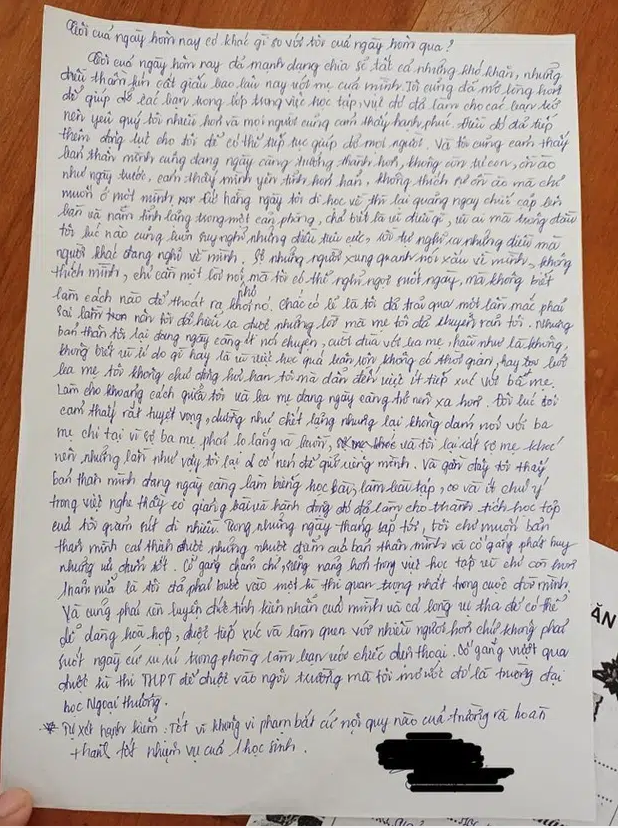 Tôi của ngày hôm nay có khác gì so với tôi của ngày hôm qua?
Tôi của ngày hôm nay đã mạnh dạng chia sẻ tất cả những khó khăn, những
điều thầm kín cất giấu bao lâu nay với mẹ của mình. Tôi cũng đã mở lòng hơn
để giúp đỡ các bạn trong lớp trong việc học tập, việc đó đã làm cho các bạn trở
nên yêu quý tôi nhiều hơn và mọi người cũng cảm thấy hạnh phúc. Điều đó đã tiếp
thêm động lực cho tôi để có thể tiếp tục giúp đỡ mọi người. Và tôi cũng cảm thấy
bản thân mình cũng đang ngày càng trưởng thành hơn, không còn trẻ con, ồn ào
như ngày trước, cảm thấy mình yên tĩnh hơn hẳn, không thích sự ồn ào mà chỉ
muốn ở một mình hàng ngày tôi đi học về thì lại quăng ngay chiếc cặp lên
bàn và nằm tĩnh lặng trong một căn phòng, chả biết là vì điều gì, vì ai mà trong đầu
tôi lúc nào cũng luôn suy nghĩ những điều tiêu cực, rồi tự nghĩ ra những điều mà
người khác đang nghĩ về mình. Sợ những người xung quanh nói xấu về mình, không
thích mình, chỉ cần một lời nói mà tôi có thể nghĩ ngợi suốt ngày, mà không biết
làm cách nào để thoát ra khỏi nó. Chắc có lẽ là tôi đã trải qua một lần mắc phải
sai lầm nên tôi đã hiểu ra được những lời mà mẹ tôi đã khuyên răn tôi. Nhưng
bản thân tôi lại đang ngày càng ít nói chuyện, cười đùa với ba mẹ, hầu như là không,
không biết vì lí do gì hay là vì việc học quá bận rộn không có thời gian, hay
ba mẹ tôi không chủ động hỏi han tôi mà dẫn đến việc ít tiếp xúc với bố mẹ.
Làm cho khoảng cách giữa tôi và ba mẹ đang ngày càng trở nên xa hơn. Đôi lúc tôi
cảm thấy rất tuyệt vọng, dường như chết lặng nhưng lại không dám nói với ba
mẹ chỉ tại vì sợ ba mẹ phải lo lắng và buồn, và tôi lại rất sợ mẹ khóc
nên những lần như vậy tôi lại cố nén để giữ riêng mình. Và gần đây tôi thấy
bản thân mình đang ngày càng làm biếng học bài, làm bài tập, và ít chú ý
trong việc nghe thầy cô giảng bài và hành động đó đã làm cho thành tích học tập
của tôi giảm sút đi nhiều. Trong những ngày tháng sắp tới, tôi chỉ muốn bản
thân mình cải thiện được những nhược điểm của bản thân mình và cố gắng phát huy
những ưu điểm tốt. Cố gắng chăm chỉ, siêng năng hơn trong việc học tập vì chỉ còn hơn
1 năm nữa là tôi đã phải bước vào một kì thi quan trọng nhất trong cuộc đời mình.
Và cũng phải rèn luyện đức tính kiên nhẫn của mình và cả lòng vị tha để có thể
dễ dàng hòa hợp, được tiếp xúc và làm quen với nhiều người hơn chứ không phải
suốt ngày cứ ù ì trong phòng làm bạn với chiếc điện thoại. Cố gắng vượt qua
được kì thi THPT để được vào ngôi trường mà tôi mơ ước đó là trường đại
học Ngoại thương.
* Tự xét hạnh kiểm: Tốt vì không vi phạm bất cứ nội quy nào của trường và hoàn
thành tốt nhiệm vụ của 1 học sinh.
ĂN